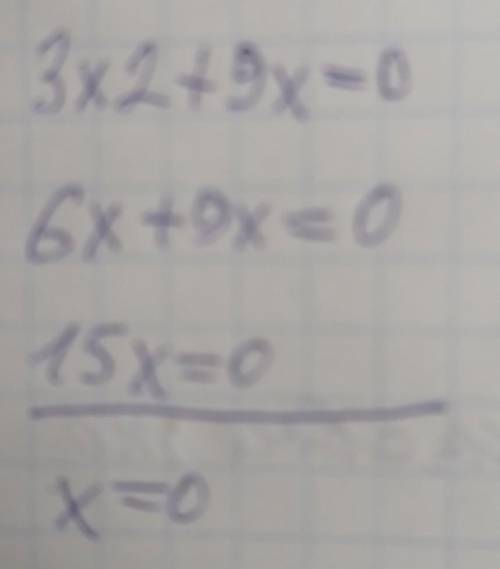 3x2+9x=0
6x+9x=0
15x=0
x=0